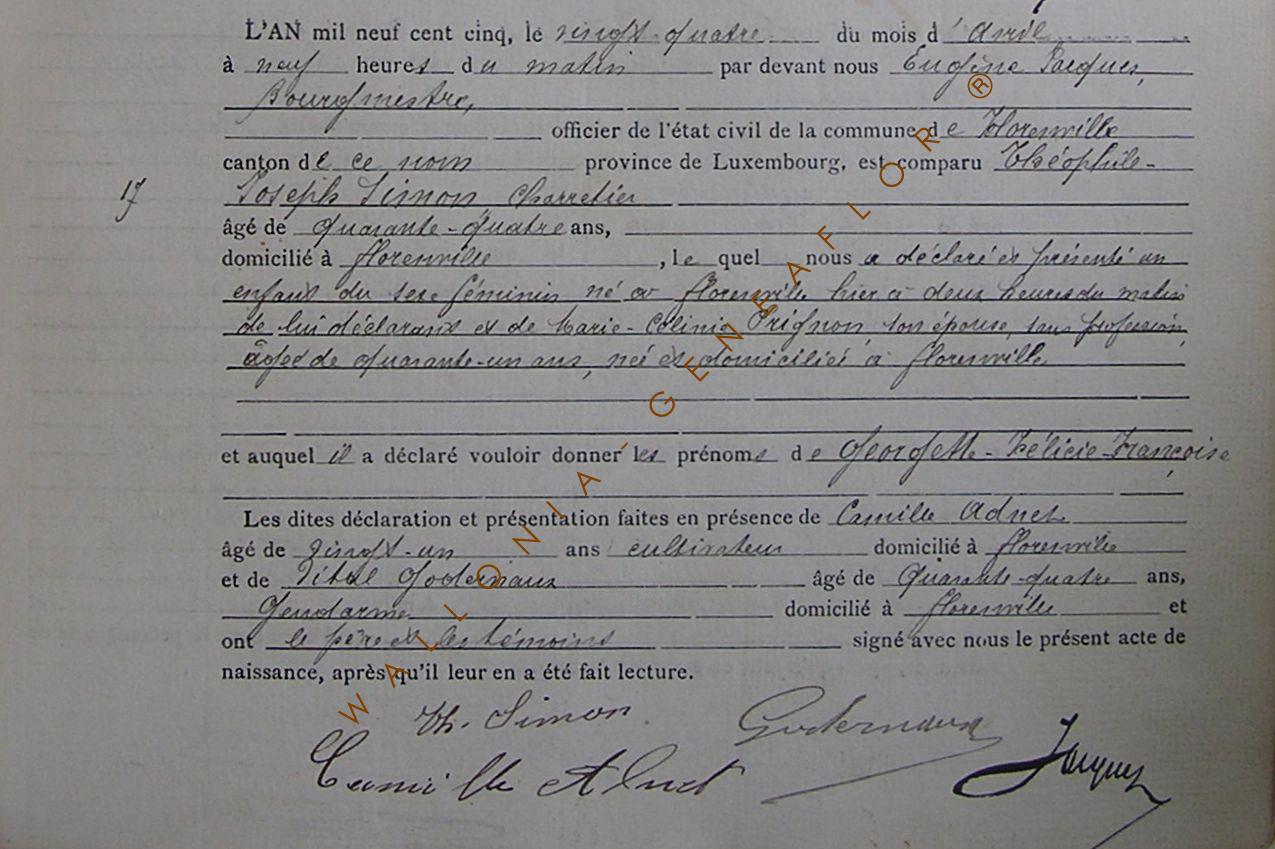 L'AN mil neuf cent cinq, le vingt-quatre du mois d'avril
à neuf heures du matin par devant nous Eugène Jacques,
Bourgmestre,
officier de l'état civil de la commune de Florenville
canton de ce nom province de Luxembourg, est comparu Théophile-
17 Joseph Simon charretier
âgé de quarante-quatre ans,
domicilié à florenville, le quel nous a déclaré et présenté un
enfant du sexe féminin né à florenville hier à deux heures du matin
de lui déclarant et de Marie-Celinie Prignon, son épouse, sans profession,
âgée de quarante-un ans, née et domiciliée à florenville
et auquel il a déclaré vouloir donner les prénoms de Georgette-Félicie-Françoise
Les dites déclaration et présentation faites en présence de Camille Adnet
âgé de vingt-un ans cultivateur domicilié à florenville
et de Vital Godernaux âgé de quarante-quatre ans,
Gendarme domicilié à florenville et
ont le père et les témoins signé avec nous le présent acte de
naissance, après qu'il leur en a été fait lecture.
Th. Simon Godernaux
Camille Adnet Jacques
WALLONIA-GENEAFLOR®